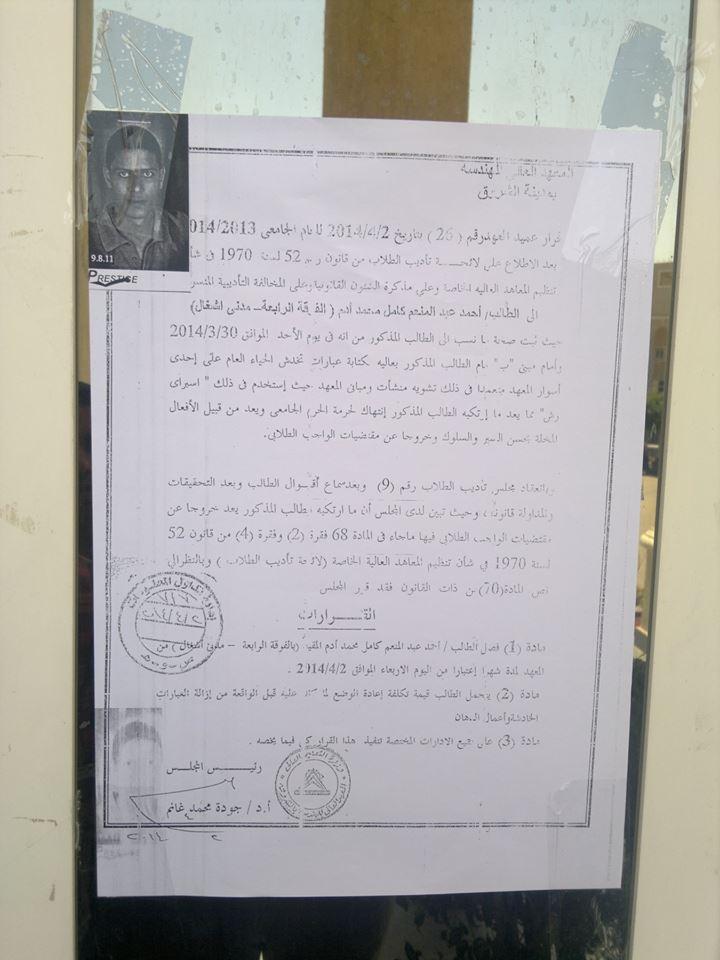 المعهد العالي للهندسة
بطريق
9.8.11
PRESTIGE
قرار عميد المعهد رقم ( 26 ) بتاريخ 2014/4/2 للعام الجامعى 2014/2013
بعد الاطلاع على لائحة تأديب الطلاب من قانون رقم 52 لسنة 1970 فى شأن
تنظيم المعاهد العاليه الخاصة وعلي مذكرة الشئون القانونية وعلى المخالفة التأديبية المنسوبة
الى الطالب/ أحمد عبد المنعم كامل محمد أدم ( الفرقة الرابعة– مدنى اشغال)
حيث ثبت صحة ما نسب الى الطالب المذكور من انه فى يوم الأحد الموافق 2014/3/30
وأمام مبنى "ب" قام الطالب المذكور بعاليه بكتابة عبارات تخدش الحياء العام على إحدى
أسوار المعهد متعمدا فى ذلك تشويه منشأت ومبانى المعهد حيث إستخدم فى ذلك " اسبراى
رش" مما يعد ما إرتكبه الطالب المذكور إنتهاك لحرمة الحرم الجامعى ويعد من قبيل الأفعال
المخلة بحسن السير والسلوك وخروجا عن مقتضيات الواجب الطلابى.
وبانعقاد مجلس تأديب الطلاب رقم (9) وبعد سماع أقوال الطالب وبعد التحقيقات
والمداولة قانونا ، وحيث تبين لدى المجلس أن ما ارتكبه الطالب المذكور يعد خروجا عن
مقتضيات الواجب الطلابى فيها ماجاء فى المادة 68 فقرة (2) وفقرة (4) من قانون 52
لسنة 1970 فى شأن تنظيم المعاهد العالية الخاصة (لائحة تأديب الطلاب ) وبالنظر الى
نص المادة(70) من ذات القانون فقد قرر المجلس
القـــرارات
مادة (1) فصل الطالب / أحمد عبد المنعم كامل محمد أدم المقيد (بالفرقة الرابعة – مدنى أشغال ) من
المعهد لمدة شهرا إعتبارا من اليوم الاربعاء الموافق 2014/4/2 .
مادة (2) يتحمل الطالب قيمة تكلفة إعادة الوضع لما كان عليه قبل الواقعة من إزالة العبارات
الخادشة وأعمال الدهان
مادة (3) على جميع الادارات المختصة تنفيذ هذا القرار كل فيما يخصه .
رئيس المجلس
أ.د/ جودة محمد غانم
وزارة التعليم العالى
٢٠١٤/٤/٢